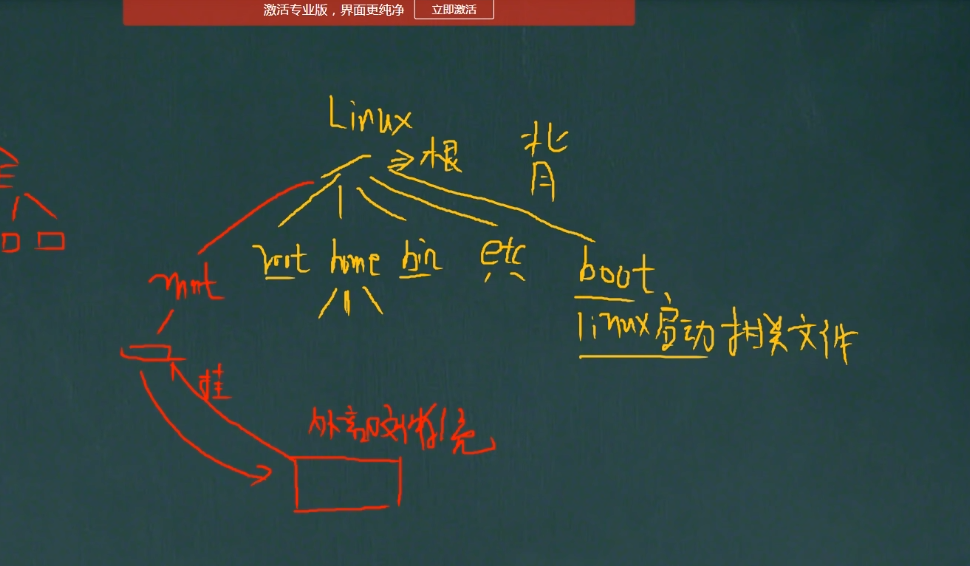 激活专业版，界面更纯净 立即激活
Linux
/ → 根
背
mnt root home bin etc boot
linux启动相关文件
挂
外部文件系统